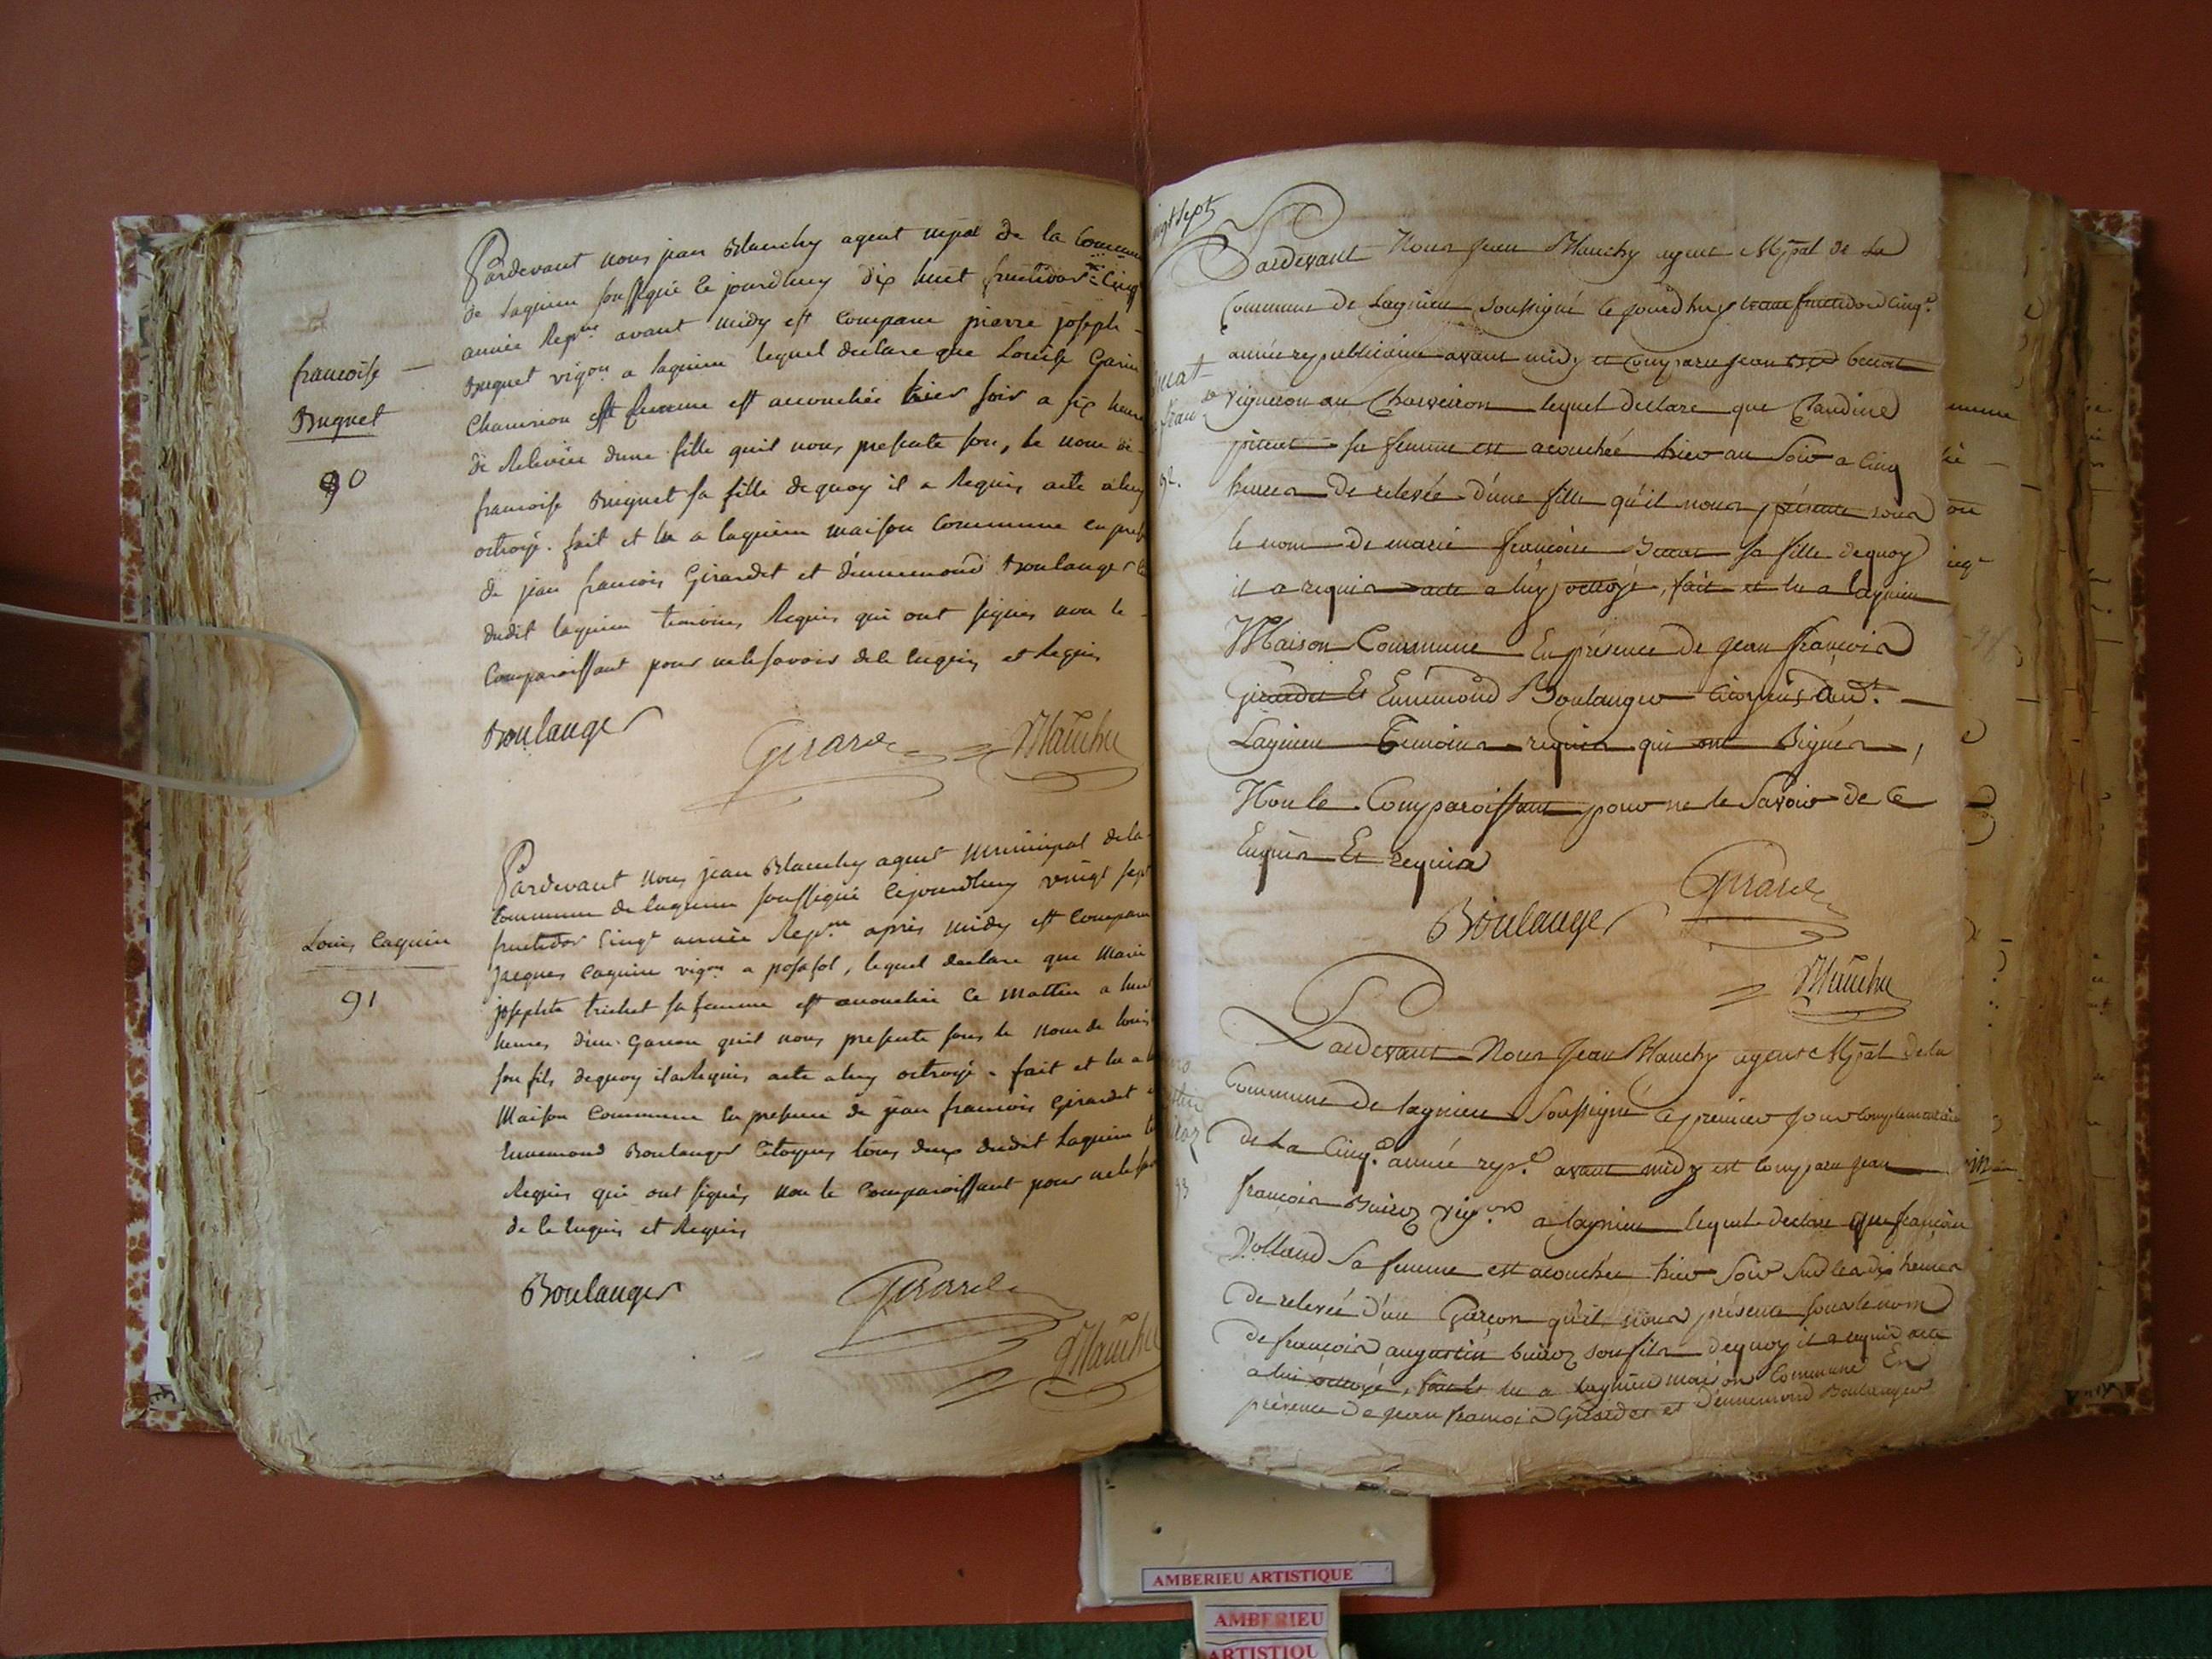 françoise
Buguet
90
Pardevant nous jean Blanchy agent mpal de la Commune
de lagnieu soussigné ce jourdhuy dix huit fructidor Cinq
année Repne avant midy est Comparu pierre joseph
Buguet vigon a lagnieu lequel declare que Louise Garin
Chamrion sa femme est accouchée hier soir a six heure
de Relevée dune fille quil nous presente sous le nom de
francoise Buguet sa fille dequoy il a Requis acte a luy
octroyé. fait et lu a lagnieu maison Commune en pres
de jean francois Girardet et d'ennemond Boulanger
dudit lagnieu temoins Requis qui ont signés non le
Comparoissant pour ne le savoir de le enquis et Requis
Boulanger Girardet Blanchy
Louis Caguin
91
Pardevant nous jean Blanchy agent municipal de la
Commune de lagnieu soussigné cejourdhuy vingt sept
fructidor Cinqe année Repne après midy est Comparu
jacques Caguin vigon a posafol, lequel declare que Marie
josephte trichet sa femme est accouchée ce mattin a huit
heures d'un Garcon quil nous presente sous le nom de louis
son fils dequoy il a Requis acte a luy octroyé. fait et lu a
Maison Commune en presence de jean francois Girardet
Ennemond Boulanger Citoyens tous deux dudit Lagnieu
Requis qui ont signés non le Comparoissant pour ne le
de le enquis et Requis
Boulanger Girardet
Blanchy
ingt sept
Pardevant Nous Jean Blanchy agent Mpal de La
Commune de Lagnieu soussigné ce jourd'huy trente fructidor Cinqe
année republicaine avant midy est Comparu jean benoit
vigneron au Charveiron lequel declare que Claudine
sa femme est acouchée hier au Soir a Cinq
92.
heures De relevée D'une fille qu'il nous présente sous
le nom de marie françoise sa fille dequoy
il a requis acte a luy octroyé, fait et lu a lagnieu
Maison Commune En présence De jean françois
Girardet Et Ennemond Boulanger Citoyens dudt.
Lagnieu Temoins requis qui ont Signés,
Non le Comparoissant pour ne le Savoir de Ce
Enquis Et requis
Girardet
Boulanger
Blanchy
Pardevant Nous Jean Blanchy agent Mpal de la
Commune de lagnieu Soussigné ce premier jour complementaire
de La Cinqe. année repe. avant midy est Comparu jean
françois Buiroz vigon a lagnieu lequel declare que françoise
Volland Sa femme est acouchée hier Soir Sur les dix heures
De relevée d'un Garçon qu'il nous présente sous le nom
de françois augustin buiroz son fils dequoy il a requis acte
a lui octroyé, fait et lu a lagnieu maison Commune En
présence De jean francois Girardet et D'ennemond Boulanger
AMBERIEU ARTISTIQUE
AMBERIEU
ARTISTIQU